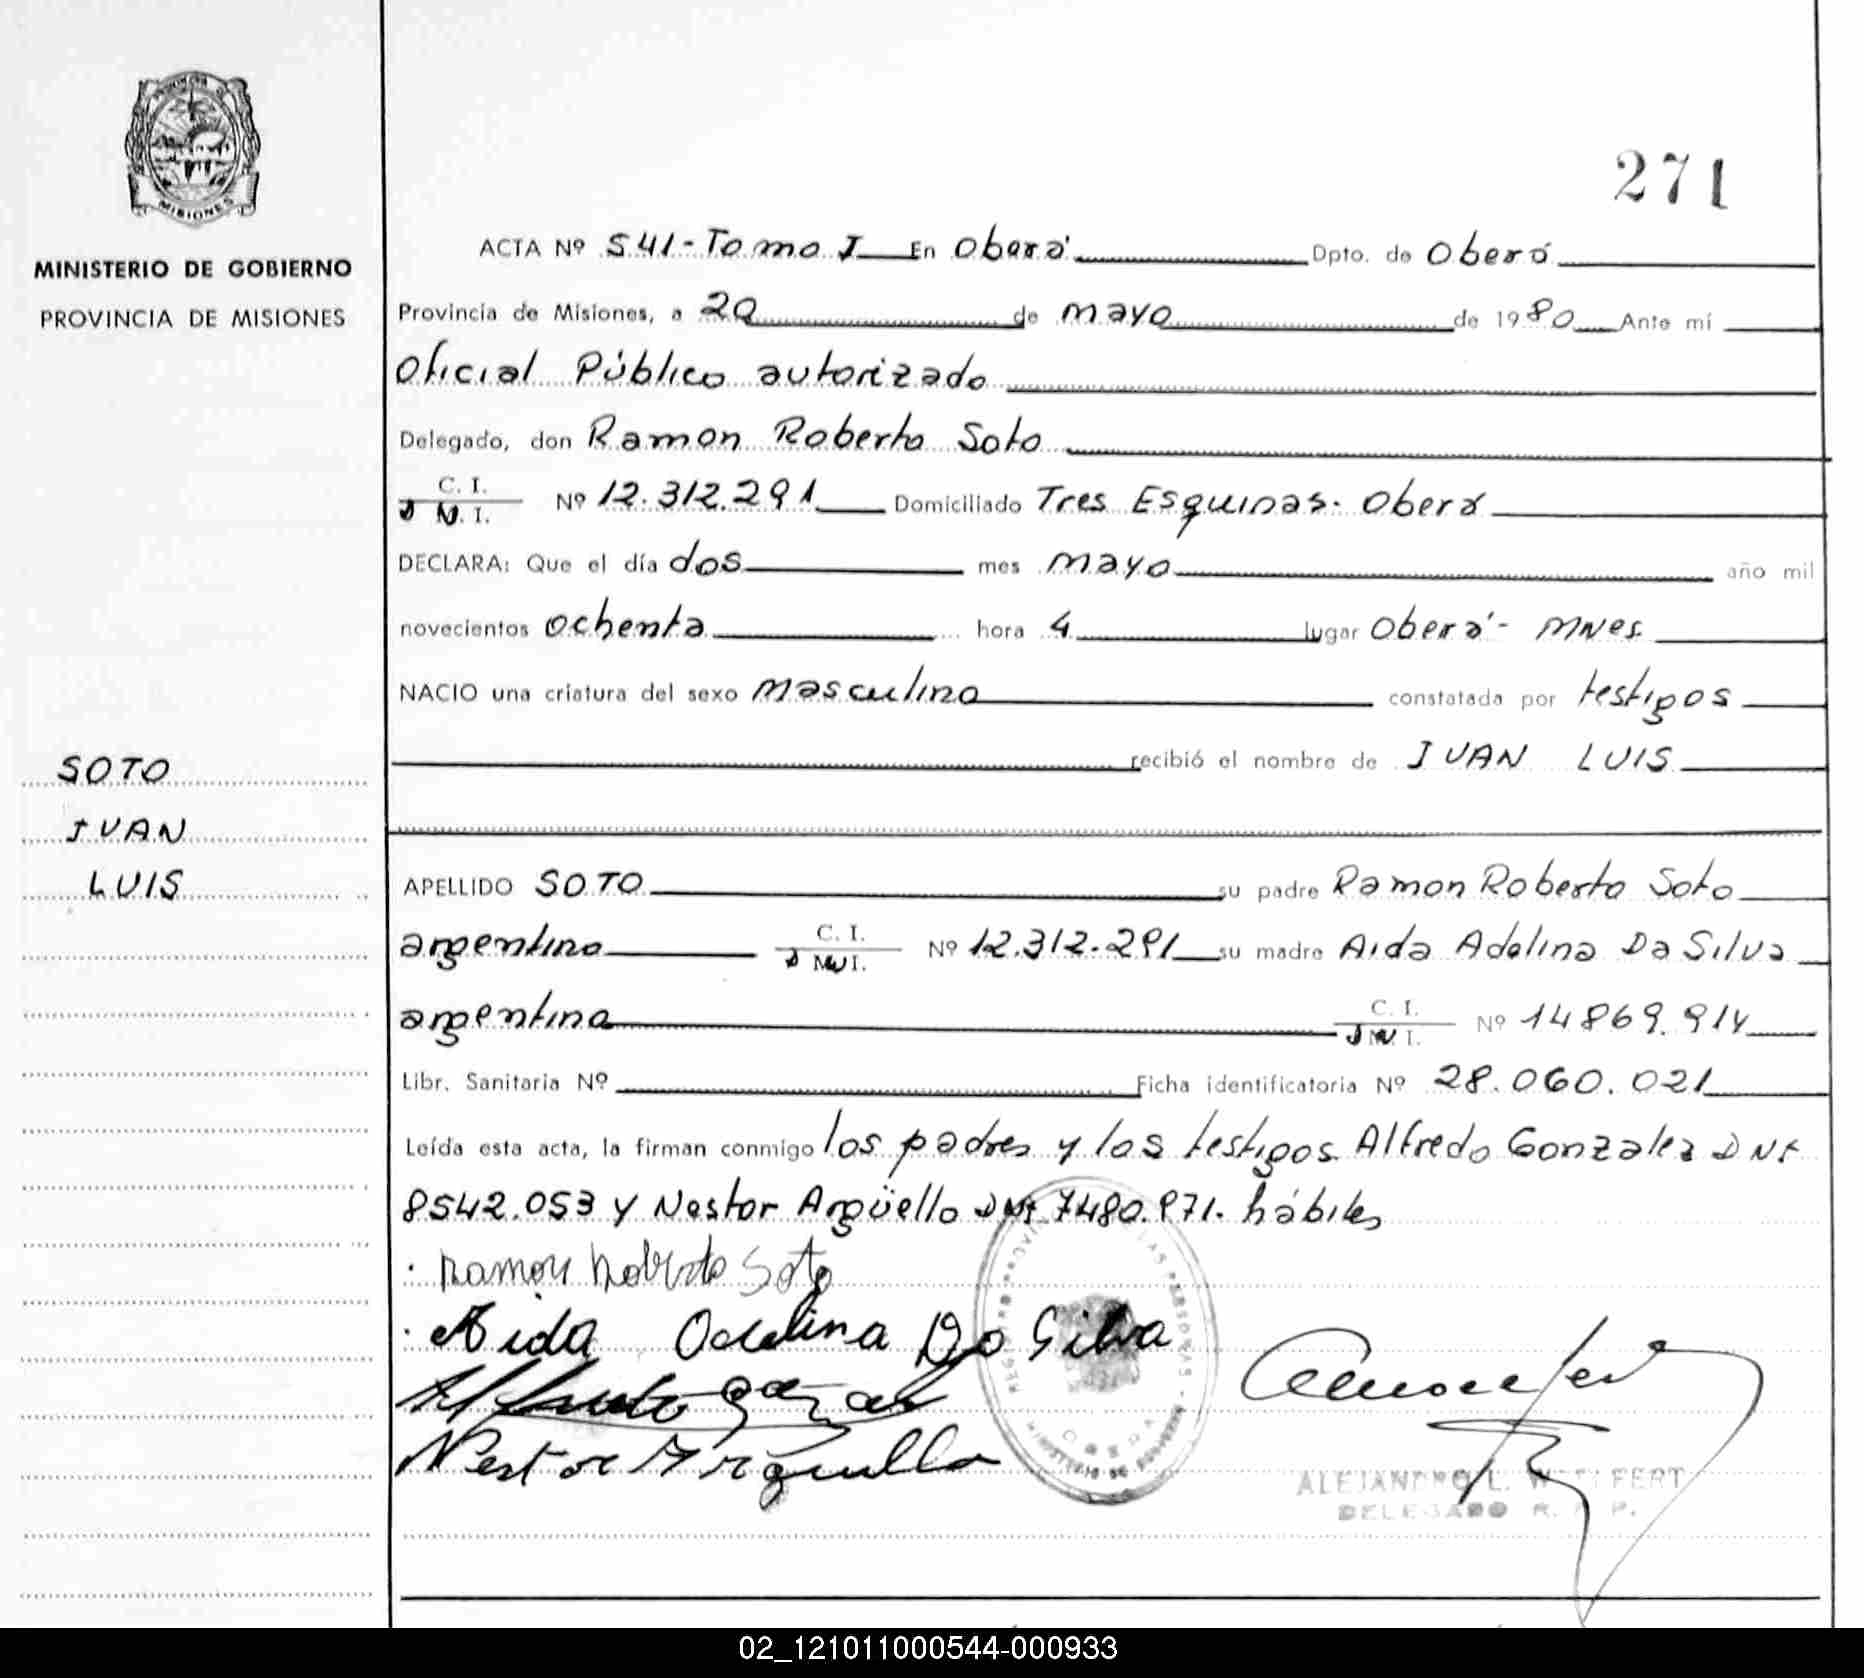 MISIONES
MINISTERIO DE GOBIERNO
PROVINCIA DE MISIONES
SOTO
IVAN
LUIS
271
ACTA Nº 541-Tomo I En Oberá Dpto. de Oberá
Provincia de Misiones, a 20 de mayo de 1980 Ante mí
Oficial Público autorizado
Delegado, don Ramon Roberto Soto
C. I.
D N. I. Nº 12.312.291 Domiciliado Tres Esquinas. Oberá
DECLARA: Que el día dos mes mayo año mil
novecientos ochenta hora 4 lugar Oberá - Mnes.
NACIO una criatura del sexo masculino constatada por testigos
recibió el nombre de IVAN LUIS
APELLIDO SOTO su padre Ramon Roberto Soto
argentino C. I. D N I. Nº 12.312.291 su madre Aida Adelina Da Silva
argentina C. I. D N. I. Nº 14869.914
Libr. Sanitaria Nº Ficha identificatoria Nº 28.060.021
Leída esta acta, la firman conmigo los padres y los testigos Alfredo Gonzalez DNI
8542.053 y Nestor Argüello DNI 7480.971. hábiles
Ramon Roberto Soto
Aida Adelina Da Silva
Nestor Arguello
LAS PERSONAS
MINISTERIO DE GOBIERNO
ALEJANDRO L. W
DELEGADO R. P.
02_121011000544-000933